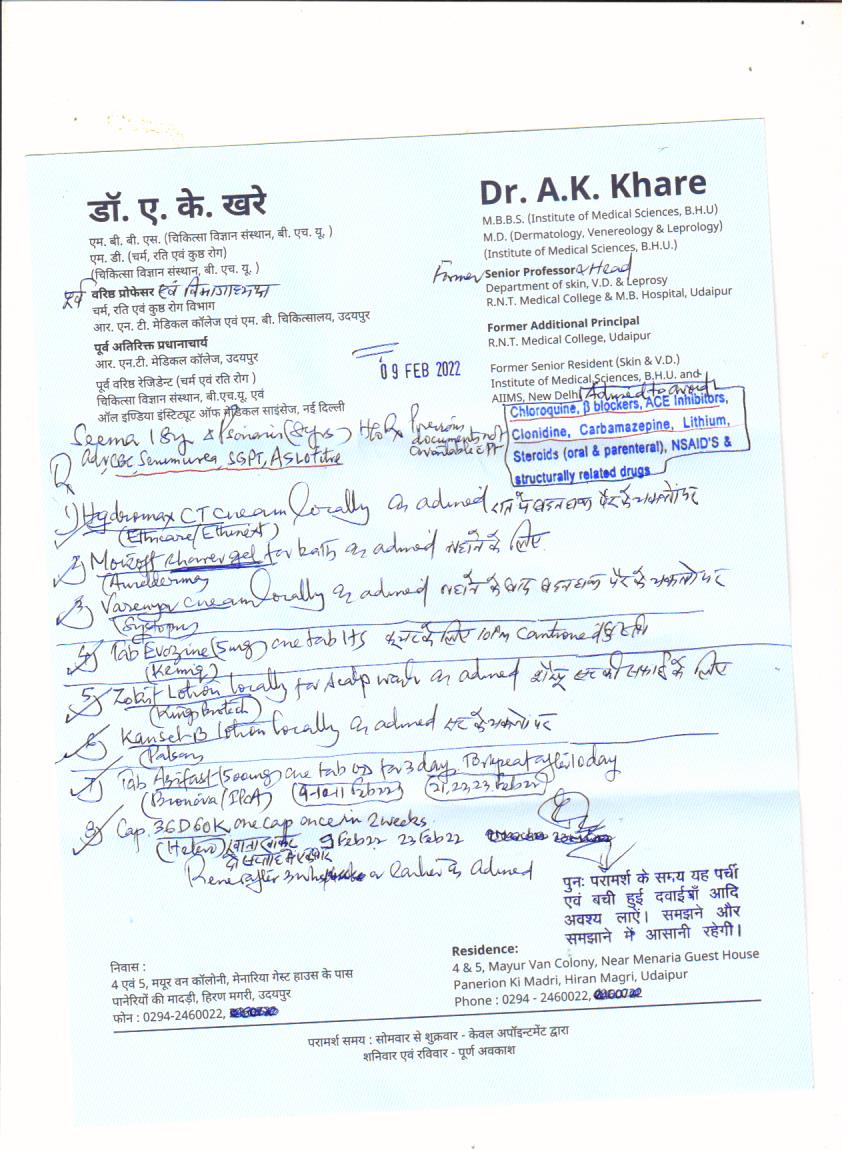 डॉ. ए. के. खरे
एम. बी. बी. एस. (चिकित्सा विज्ञान संस्थान, बी. एच. यू. )
एम. डी. (चर्म, रति एवं कुष्ठ रोग)
(चिकित्सा विज्ञान संस्थान, बी. एच. यू. )
पूर्व वरिष्ठ प्रोफेसर एवं विभागाध्यक्ष
चर्म, रति एवं कुष्ठ रोग विभाग
आर. एन. टी. मेडिकल कॉलेज एवं एम. बी. चिकित्सालय, उदयपुर
पूर्व अतिरिक्त प्रधानाचार्य
आर. एन.टी. मेडिकल कॉलेज, उदयपुर
पूर्व वरिष्ठ रेजिडेन्ट (चर्म एवं रति रोग )
चिकित्सा विज्ञान संस्थान, बी.एच.यू. एवं
ऑल इण्डिया इंस्टिट्यूट ऑफ मेडिकल साइंसेज, नई दिल्ली
Dr. A.K. Khare
M.B.B.S. (Institute of Medical Sciences, B.H.U)
M.D. (Dermatology, Venereology & Leprology)
(Institute of Medical Sciences, B.H.U.)
Former Senior Professor & Head
Department of skin, V.D. & Leprosy
R.N.T. Medical College & M.B. Hospital, Udaipur
Former Additional Principal
R.N.T. Medical College, Udaipur
Former Senior Resident (Skin & V.D.)
Institute of Medical Sciences, B.H.U. and
AIIMS, New Delhi
09 FEB 2022
Advised to avoid
Chloroquine, β blockers, ACE Inhibitors,
Clonidine, Carbamazepine, Lithium,
Steroids (oral & parenteral), NSAID'S &
structurally related drugs
Seema Psoriasis (8yrs) H/o Rx Previous
documents not
available
Adv CBC, Serum urea, SGPT, ASLO titre
Rx
1) Hydromax CT cream locally as advised रात में
(Ethicare/Ethinext)
2) Moizoff shower gel for bath as advised नहाने के लिए
3) Varenya cream locally as advised नहाने के बाद
4) Tab Evozine (5mg) one tab HS के लिए 10 PM
5) Lotion locally for scalp wash as advised शैम्पू सर की सफाई के लिए
(Kings Biotech)
6) Kansel-B lotion locally as advised सर के चकत्तो पर
(Palsons)
7) Tab Azifast (500mg) one tab OD for 3 day, To repeat after 10 day
(Bionova/IPCA) (21, 22, 23 Feb 22)
8) Cap. 3GD60K one cap once in 2 weeks
(Hetero) 9 Feb 22 23 Feb 22
or earlier as advised
पुनः परामर्श के समय यह पर्ची
एवं बची हुई दवाईयाँ आदि
अवश्य लाऐं। समझने और
समझाने में आसानी रहेगी।
निवास :
4 एवं 5, मयूर वन कॉलोनी, मेनारिया गेस्ट हाउस के पास
पानेरियों की मादड़ी, हिरण मगरी, उदयपुर
फोन : 0294-2460022,
Residence:
4 & 5, Mayur Van Colony, Near Menaria Guest House
Panerion Ki Madri, Hiran Magri, Udaipur
Phone : 0294 - 2460022,
परामर्श समय : सोमवार से शुक्रवार - केवल अपॉइन्टमेंट द्वारा
शनिवार एवं रविवार - पूर्ण अवकाश